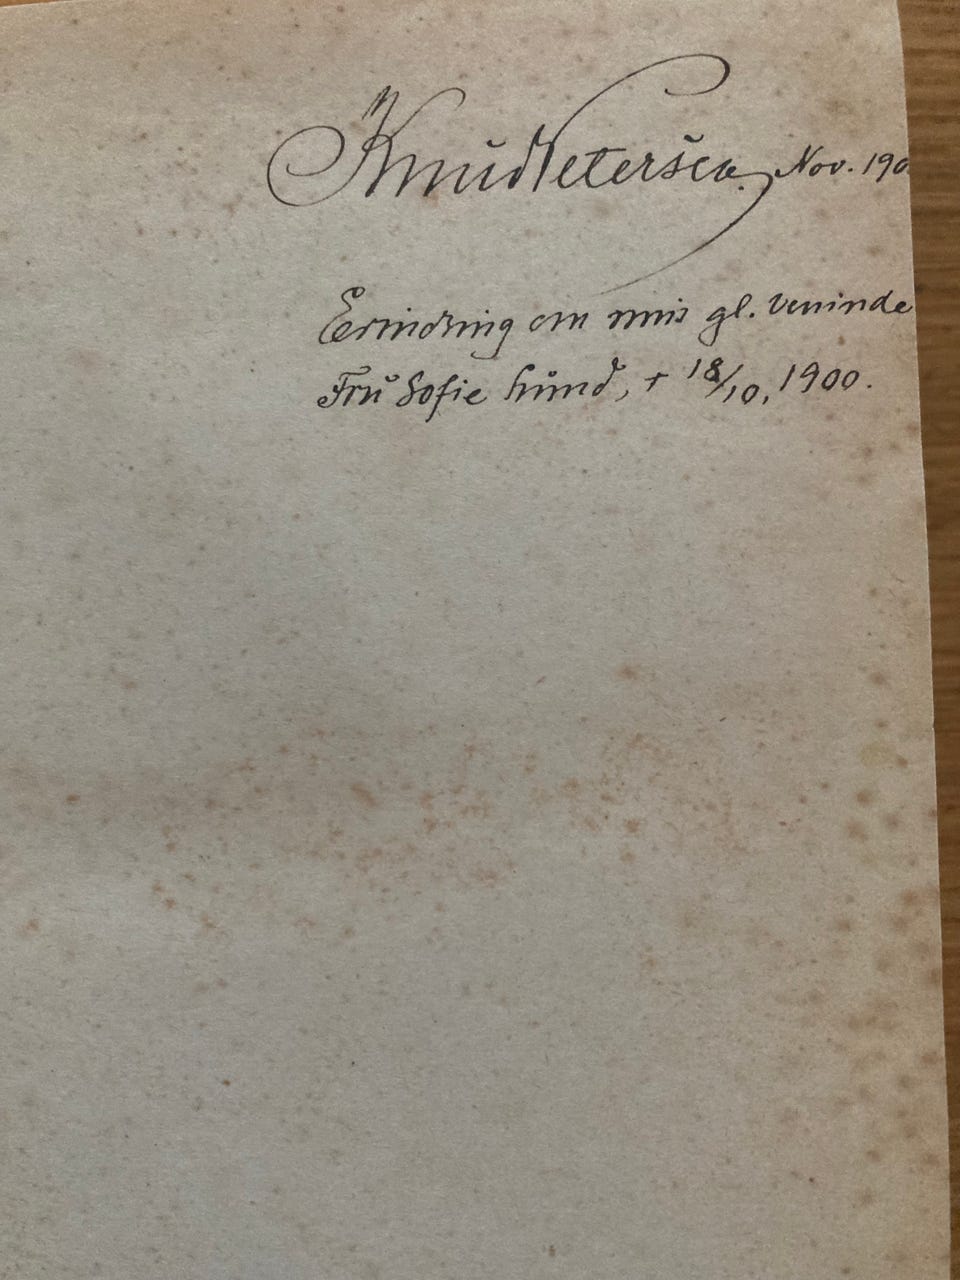 Knud Petersen. Nov. 190
Erindring om min gl. Veninde
Frú Sofie Lund, † 18/10, 1900.